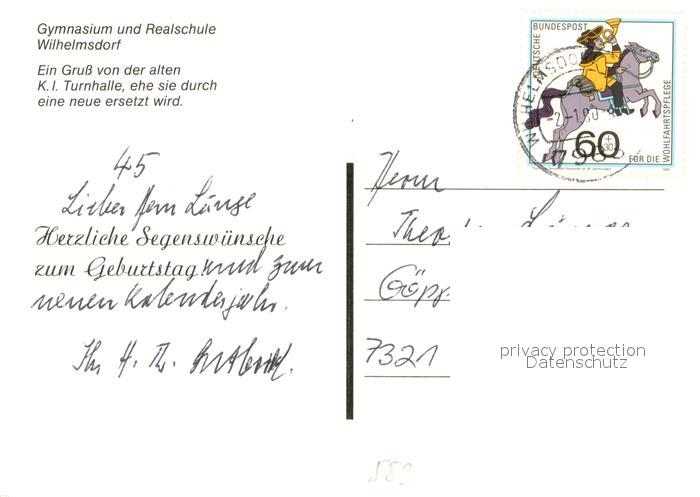 Gymnasium und Realschule
Wilhelmsdorf
Ein Gruß von der alten
K.I. Turnhalle, ehe sie durch
eine neue ersetzt wird.
45
Lieber Herr Länge
Herzliche Segenswünsche
zum Geburtstag und zum
neuen Kalenderjahr.
Ihr H. Th.
DEUTSCHE BUNDESPOST
60
+30
FÜR DIE WOHLFAHRTSPFLEGE
WILHELMSDO
-2.-1.90
798
Herrn
Theo
Göpp
7321
privacy protection
Datenschutz